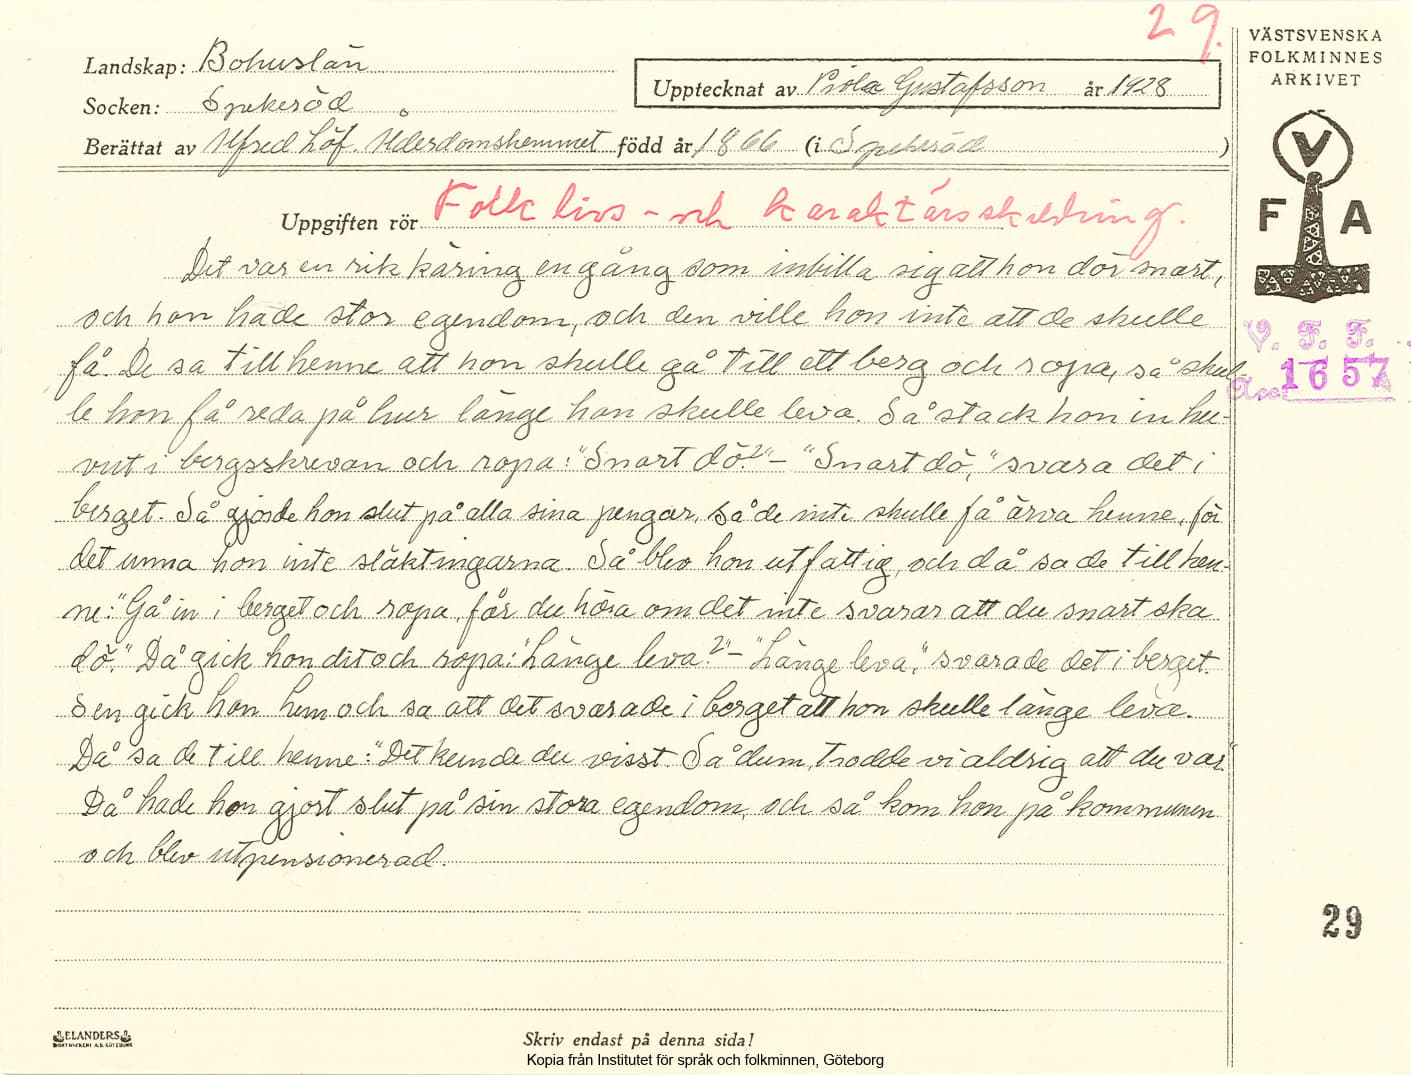 29.
VÄSTSVENSKA
FOLKMINNES
ARKIVET
Landskap: Bohuslän
Upptecknat av Viola Gustafsson år 1928
Socken: Spekeröd
Berättat av Alfred Löf. Ålderdomshemmet född år 1866 (i Spekeröd )
V
F A
Uppgiften rör Folklivs- och karaktärsskildring.
Det var en rik käring en gång som inbilla sig att hon dör snart,
och hon hade stor egendom, och den ville hon inte att de skulle
få. De sa till henne att hon skulle gå till ett berg och ropa, så skul-
le hon få reda på hur länge hon skulle leva. Så stack hon in hu-
vut i bergsskrevan och ropa: "Snart dö?" - "Snart dö," svara det i
berget. Så gjorde hon slut på alla sina pengar, så de inte skulle få ärva henne, för
det unna hon inte släktingarna. Så blev hon utfattig, och då sa de till hen-
ne: "Gå in i berget och ropa, får du höra om det inte svarar att du snart ska
dö." Då gick hon dit och ropa: "Länge leva?" - "Länge leva," svarade det i berget.
Sen gick hon hem och sa att det svarade i berget att hon skulle länge leva.
Då sa de till henne: "Det kunde du visst. Så dum, trodde vi aldrig att du var."
Då hade hon gjort slut på sin stora egendom, och så kom hon på kommunen
och blev utpensionerad.
V. F. F.
Acc: 1657
29
ELANDERS
BOKTRYCKERI A.B. GÖTEBORG
Skriv endast på denna sida!
Kopia från Institutet för språk och folkminnen, Göteborg